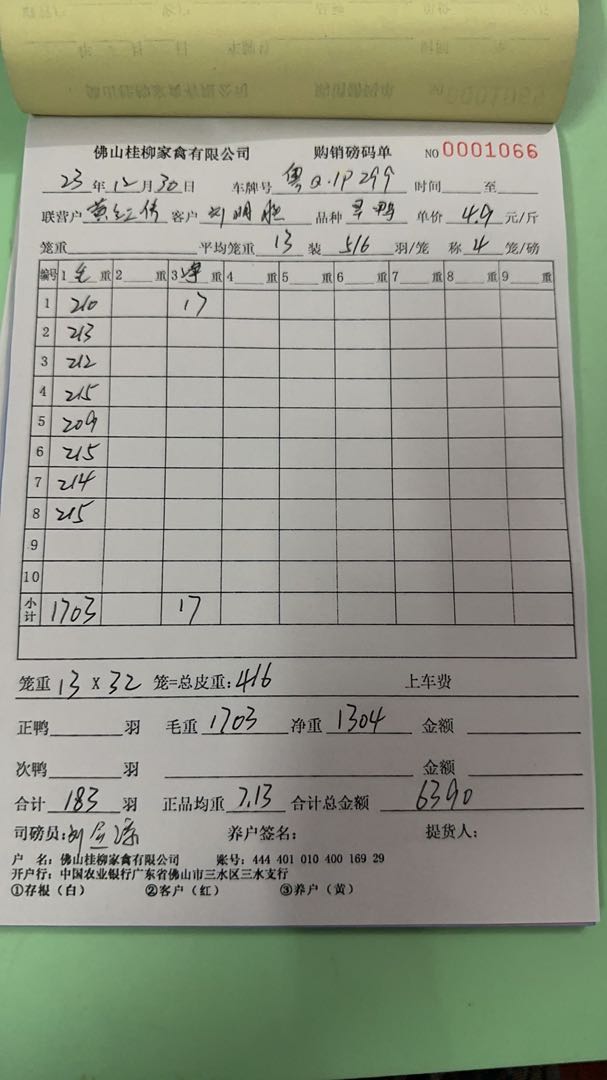 佛山桂柳家禽有限公司 购销磅码单 NO 0001066
23年12月30日 车牌号 粤Q.1P299 时间 至
联营户 黄红伟 客户 刘明 品种 鸭 单价 4.9 元/斤
笼重 平均笼重 13 装 5/6 羽/笼 称 4 笼/磅
编号 1 毛 重 2 重 3 净 重 4 重 5 重 6 重 7 重 8 重 9 重
1 210 17
2 213
3 212
4 215
5 209
6 215
7 214
8 215
9
10
小计 1703 17
笼重 13 X 32 笼=总皮重: 416 上车费
正鸭 羽 毛重 1703 净重 1304 金额
次鸭 羽 金额
合计 183 羽 正品均重 7.13 合计总金额 6390
司磅员: 刘 养户签名: 提货人:
户 名: 佛山桂柳家禽有限公司 账号: 444 401 010 400 169 29
开户行: 中国农业银行广东省佛山市三水区三水支行
①存根(白) ②客户(红) ③养户(黄)